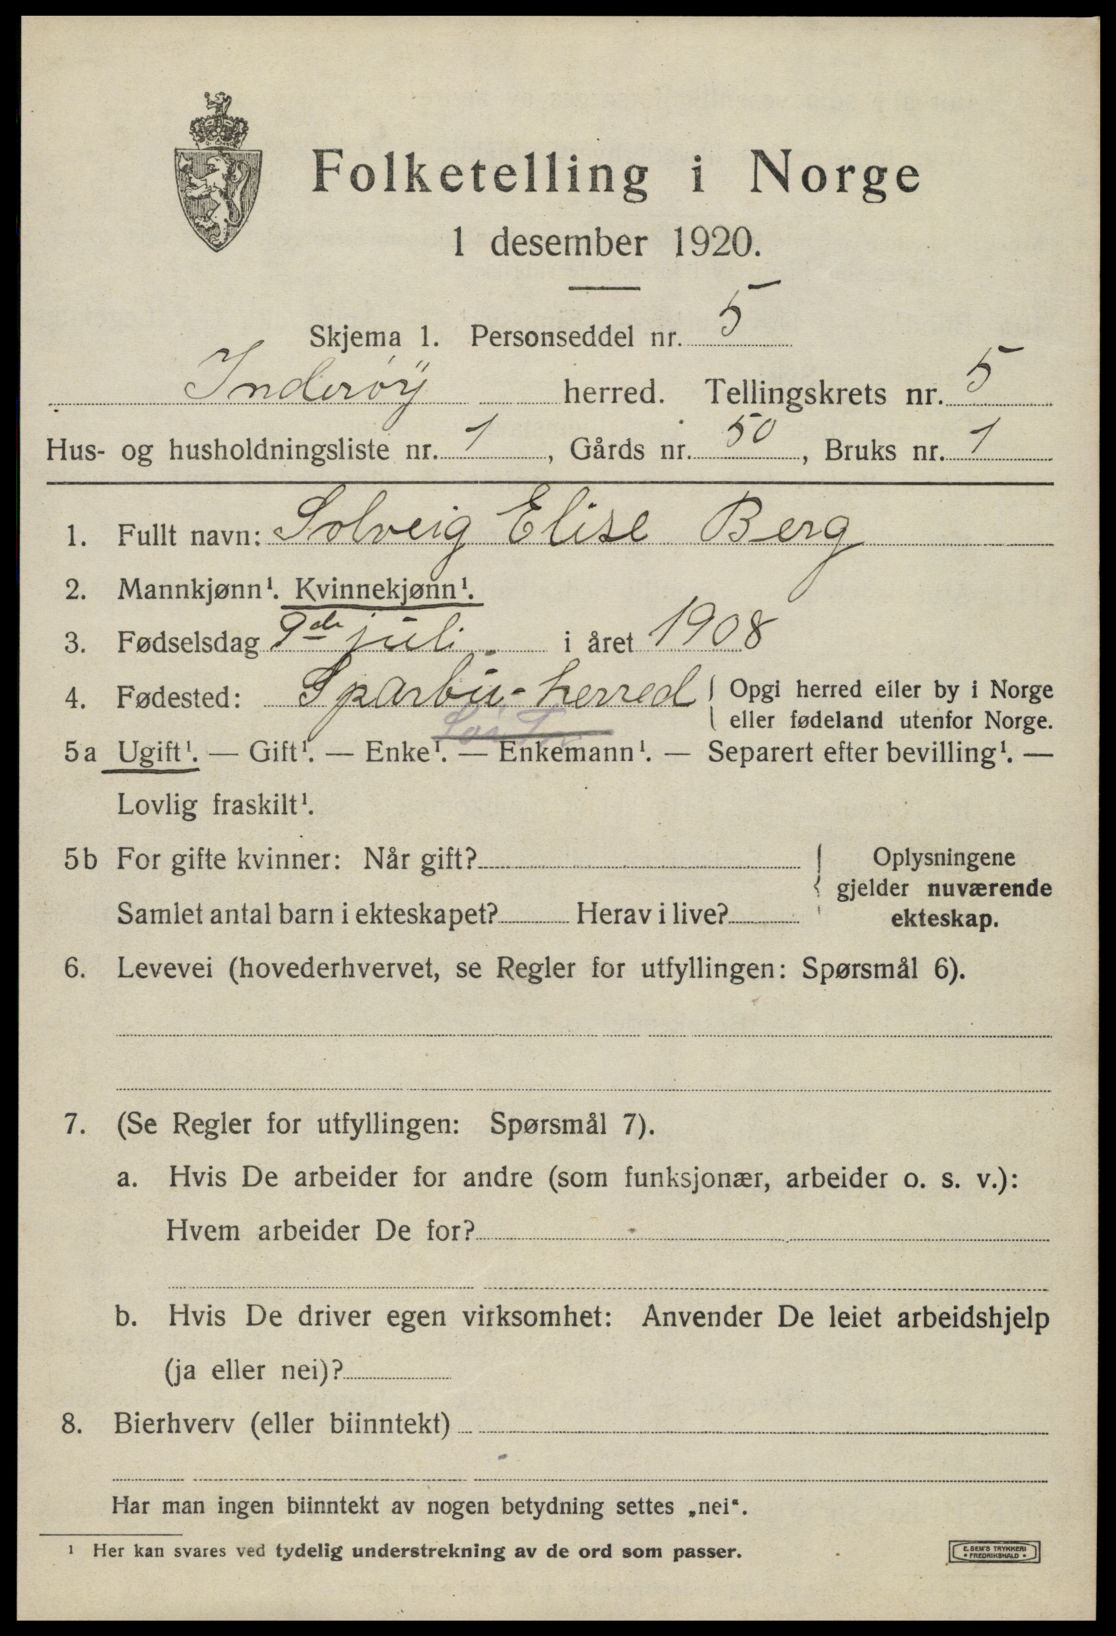 Folketelling i Norge
1 desember 1920.
Skjema 1. Personseddel nr. 5
Inderøy herred. Tellingskrets nr. 5
Hus- og husholdningsliste nr. 1, Gårds nr. 50, Bruks nr. 1
1. Fullt navn: Solveig Elise Berg
2. Mannkjønn¹. Kvinnekjønn¹.
3. Fødselsdag 9de juli i året 1908
4. Fødested: Sparbu-herred { Opgi herred eller by i Norge
eller fødeland utenfor Norge.
5a Ugift¹. — Gift¹. — Enke¹. — Enkemann¹. — Separert efter bevilling¹. —
Lovlig fraskilt¹.
5b For gifte kvinner: Når gift? { Oplysningene
gjelder nuværende
Samlet antal barn i ekteskapet? Herav i live? ekteskap.
6. Levevei (hovederhvervet, se Regler for utfyllingen: Spørsmål 6).
7. (Se Regler for utfyllingen: Spørsmål 7).
a. Hvis De arbeider for andre (som funksjonær, arbeider o. s. v.):
Hvem arbeider De for?
b. Hvis De driver egen virksomhet: Anvender De leiet arbeidshjelp
(ja eller nei)?
8. Bierhverv (eller biinntekt)
Har man ingen biinntekt av nogen betydning settes „nei“.
¹ Her kan svares ved tydelig understrekning av de ord som passer.
E. SEM'S TRYKKERI
* FREDRIKSHALD *